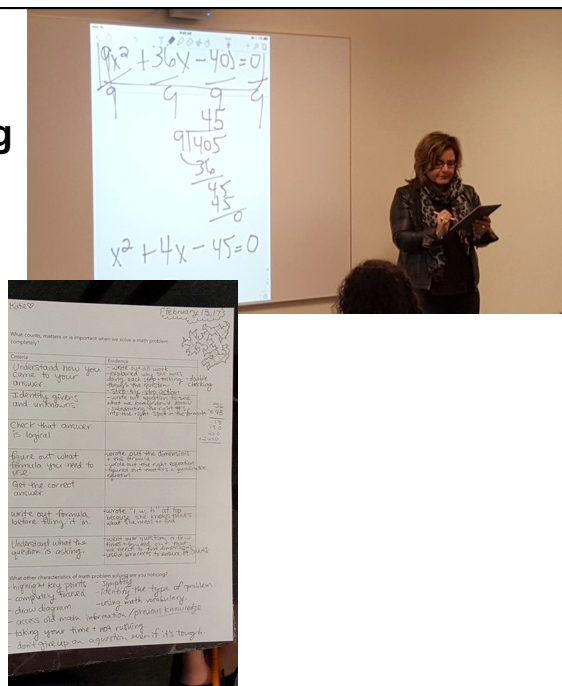 g
9x² + 36x - 405 = 0
9 9 9 9
45
9)405
36
45
45
0
x² + 4x - 45 = 0
Katie
February 15, 17
What counts, matters or is important when we solve a math problem
completely?
Criteria Evidence
Understand how you
came to your
answer.
- wrote out all work
- explained why she was
doing each step + talking
through the question
- double
checking
- step-by-step
Identify givens
and unknowns
Check that answer
is logical
figure out what
formula you need to
use.
- wrote out the dimensions
+ the formula
- wrote out the right equation
- figured out that it is a quadratic
equation
Get the correct
answer
write out formula
before filling it in.
- wrote "l, w, h" at top
because she knows that's
what she needs to find
Understand what the
question is asking.
- went over question a few
times
we need to find dimensions
- used brackets to ensure
What other characteristics of math problem solving are you noticing?
- highlight key points - simplify
- completely focused - identify the type of problem
- draw diagram - using math vocabulary
- access old math information / previous knowledge
- taking your time + not rushing
- don't give up on a question even if it's tough.